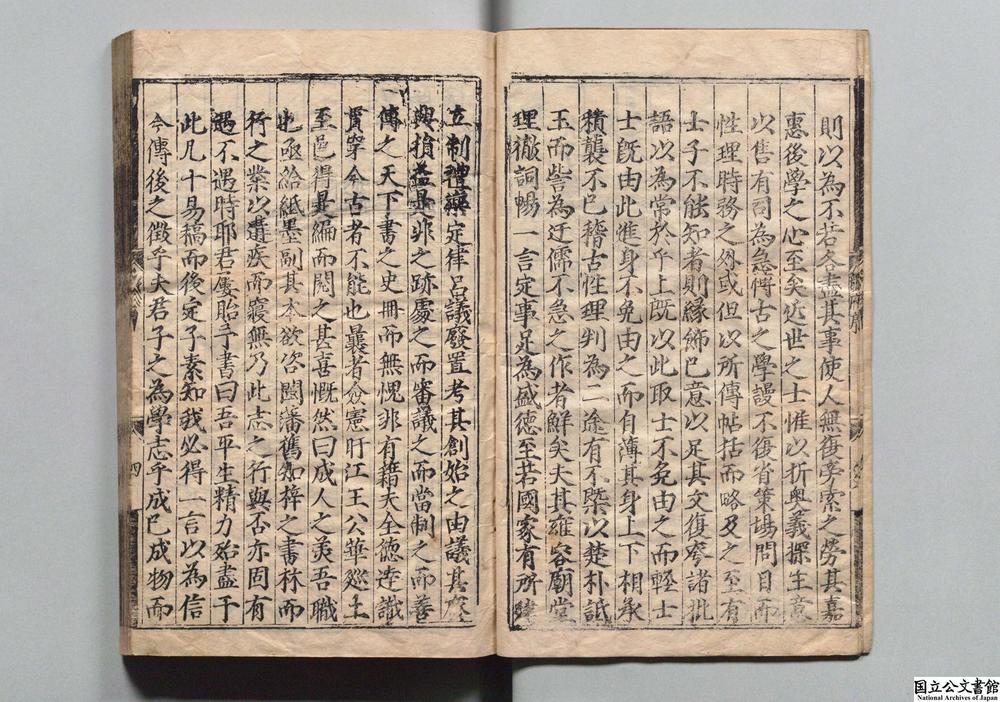 則以為不若各盡其事使人無復旁索之勞其嘉
惠後學之心至矣近世之士惟以折奥義探生意
以售有司為急稽古之學謾不復省策場問目而
性理時務之外或但以所傳帖括而略及之至有
士子不能知者則緣飾已意以足其文復夸諸批
語以為常於乎上既以此取士不免由之而輕士
士既由此進身不免由之而自薄其身上下相承
積襲不已稽古性理判為二途有不槩以楚朴詆
玉而訾為迂儒不急之作者鮮矣夫其雍容廟堂
理徹詞暢一言定事足為盛德至若國家有所肄
立制禮樂定律呂議發置考其創始之由議其廢
興損益是非之跡處之而審議之而當制之而善
傳之天下書之史冊而無愧非有籍大全德逹識
貫穿今古者不能也曩者僉憲盱江王公華廵土
至邑得是編而閱之甚喜慨然曰成人之美吾職
也亟給紙墨副其本欲咨閩藩舊知梓之書林而
行之業以遺疾而寢無乃此志之行與否亦固有
遇不遇時耶君屢貽予書曰吾平生精力殆盡于
此凡十易稿而後定子素知我必得一言以為信
今傳後之徵乎夫君子之為學志乎成已成物而
四
国立公文書館
National Archives of Japan